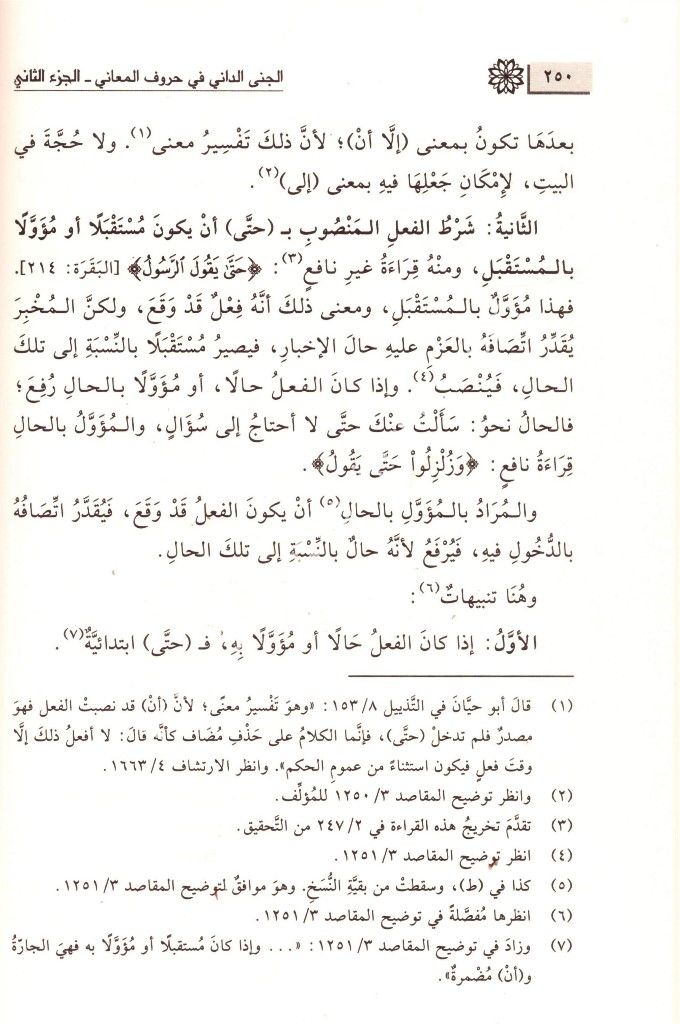 ٢٥٠ الجنى الداني في حروف المعاني - الجزء الثاني
بعدَهَا تكونُ بمعنى (إلَّا أنْ)؛ لأنَّ ذلكَ تَفْسِيرُ معنى(١). ولا حُجَّةَ في
البيتِ، لإمْكَانِ جَعْلِهَا فيهِ بمعنى (إلى)(٢).
الثَّانيةُ: شَرْطُ الفعلِ المَنْصُوبِ بـ (حتَّى) أنْ يكونَ مُسْتَقْبَلًا أو مُؤَوَّلًا
بالمُسْتَقْبَلِ، ومنْهُ قِرَاءَةُ غيرِ نافعٍ(٣): ﴿حَتَّىٰ يَقُولَ الرَّسُولُ﴾ [البَقَرَة: ٢١٤].
فهذا مُؤَوَّلٌ بالمُسْتَقْبَلِ، ومعنى ذلكَ أنَّهُ فِعْلٌ قَدْ وَقَعَ، ولكنَّ المُخْبِرَ
يُقَدِّرُ اتِّصَافَهُ بالعَزْمِ عليهِ حالَ الإخبارِ، فيصيرُ مُسْتَقْبَلًا بالنِّسْبَةِ إلى تلكَ
الحالِ، فَيُنْصَبُ(٤). وإذا كانَ الفعلُ حالًا، أو مُؤَوَّلًا بالحالِ رُفِعَ؛
فالحالُ نحوُ: سَأَلْتُ عنْكَ حتَّى لا أحتاجُ إلى سُؤَالٍ، والمُؤَوَّلُ بالحالِ
قِرَاءَةُ نافعٍ: ﴿وَزُلْزِلُواْ حَتَّى يَقُولُ﴾.
والمُرَادُ بالمُؤَوَّلِ بالحالِ(٥) أنْ يكونَ الفعلُ قَدْ وَقَعَ، فَيُقَدَّرُ اتِّصَافُهُ
بالدُّخُولِ فيهِ، فَيُرْفَعُ لأنَّهُ حالٌ بالنِّسْبَةِ إلى تلكَ الحالِ.
وهُنَا تنبيهاتٌ(٦):
الأوَّلُ: إذا كانَ الفعلُ حَالًا أو مُؤَوَّلًا بِهِ، فـ (حتَّى) ابتدائيَّةٌ(٧).
(١) قالَ أبو حيَّانَ في التَّذييل ٨/ ١٥٣: «وهوَ تَفْسيرُ معنًى؛ لأنَّ (أنْ) قد نصبتْ الفعل فهوَ
مصدرٌ فلم تدخلْ (حتَّى)، فإنَّما الكلامُ على حَذْفِ مُضَاف كأنَّه قالَ: لا أفعلُ ذلكَ إلَّا
وقتَ فعلٍ فيكون استثناءً من عمومِ الحكم». وانظر الارتشاف ٤/ ١٦٦٣.
(٢) وانظر توضيح المقاصد ٣/ ١٢٥٠ للمُؤلِّف.
(٣) تقدَّمَ تخريجُ هذه القراءة في ٢/ ٢٤٧ من التَّحقيق.
(٤) انظر توضيح المقاصد ٣/ ١٢٥١.
(٥) كذا في (ط)، وسقطتْ من بقيَّةِ النُّسَخِ. وهوَ موافقٌ لتوضيح المقاصد ٣/ ١٢٥١.
(٦) انظرها مُفصَّلةً في توضيح المقاصد ٣/ ١٢٥١.
(٧) وزادَ في توضيح المقاصد ٣/ ١٢٥١: «... وإذا كانَ مُستقبلًا أو مُؤَوَّلًا به فهيَ الجارّةُ
و(أنْ) مُضْمرةٌ».